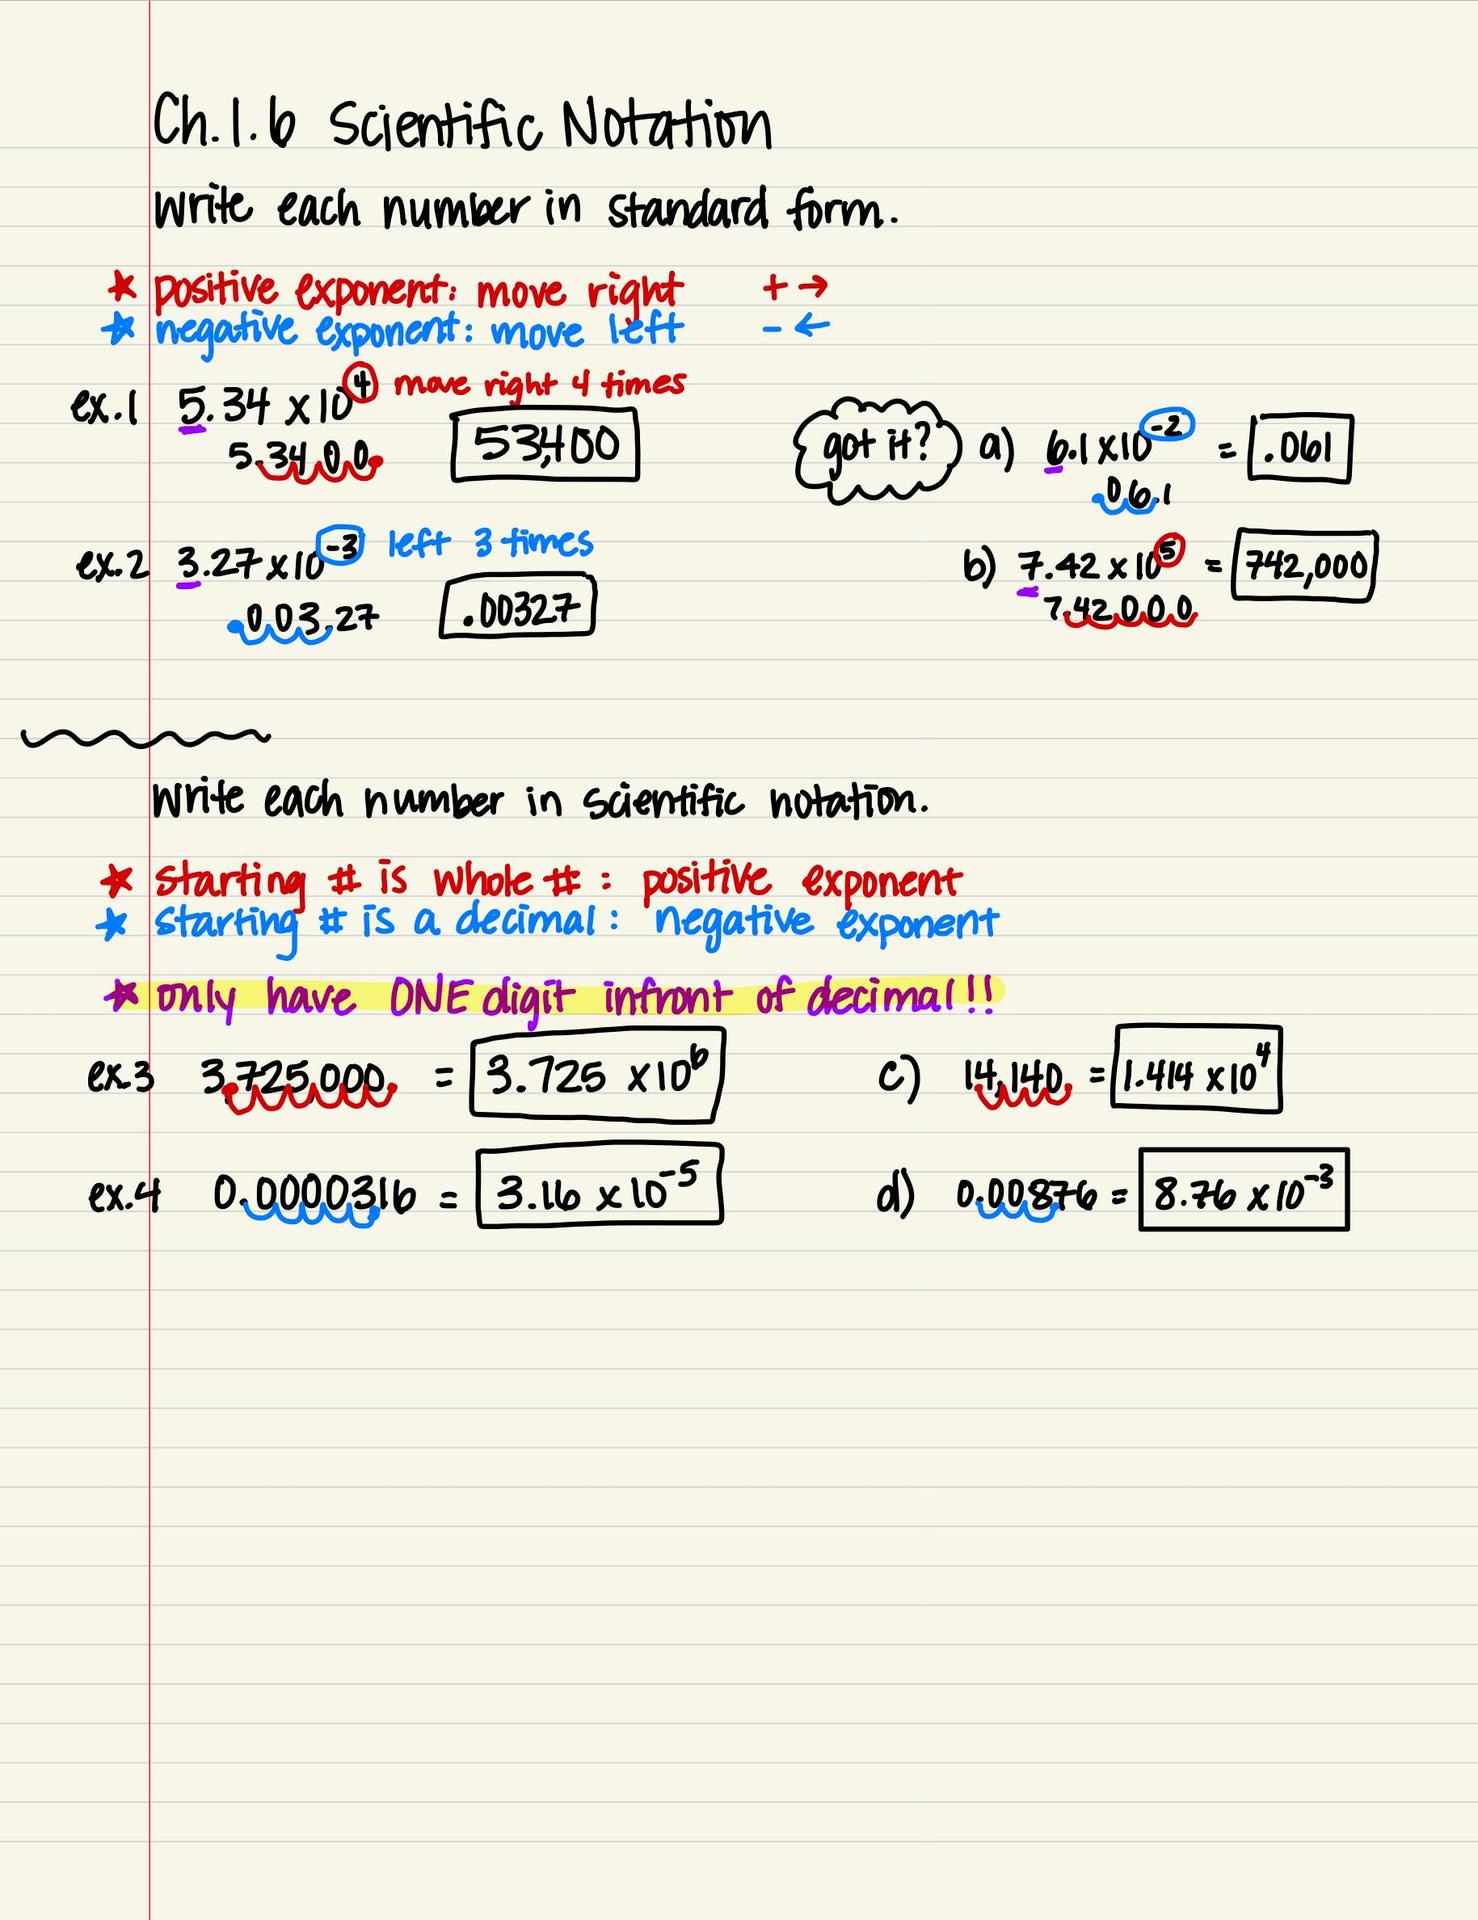 Ch.1.6 Scientific Notation
Write each number in standard form.
* positive exponent: move right + →
* negative exponent: move left - ←
ex.1 5.34 x10⁴ move right 4 times
5.3400 53,400
got it? a) 6.1 x10⁻² = .061
06.1
ex.2 3.27 x10⁻³ left 3 times
.003.27 .00327
b) 7.42 x10⁵ = 742,000
7.42000
Write each number in scientific notation.
* starting # is whole # : positive exponent
* starting # is a decimal : negative exponent
* only have ONE digit infront of decimal!!
ex.3 3,725,000. = 3.725 x10⁶
c) 14,140. = 1.414 x10⁴
ex.4 0.0000316 = 3.16 x10⁻⁵
d) 0.00876 = 8.76 x10⁻³